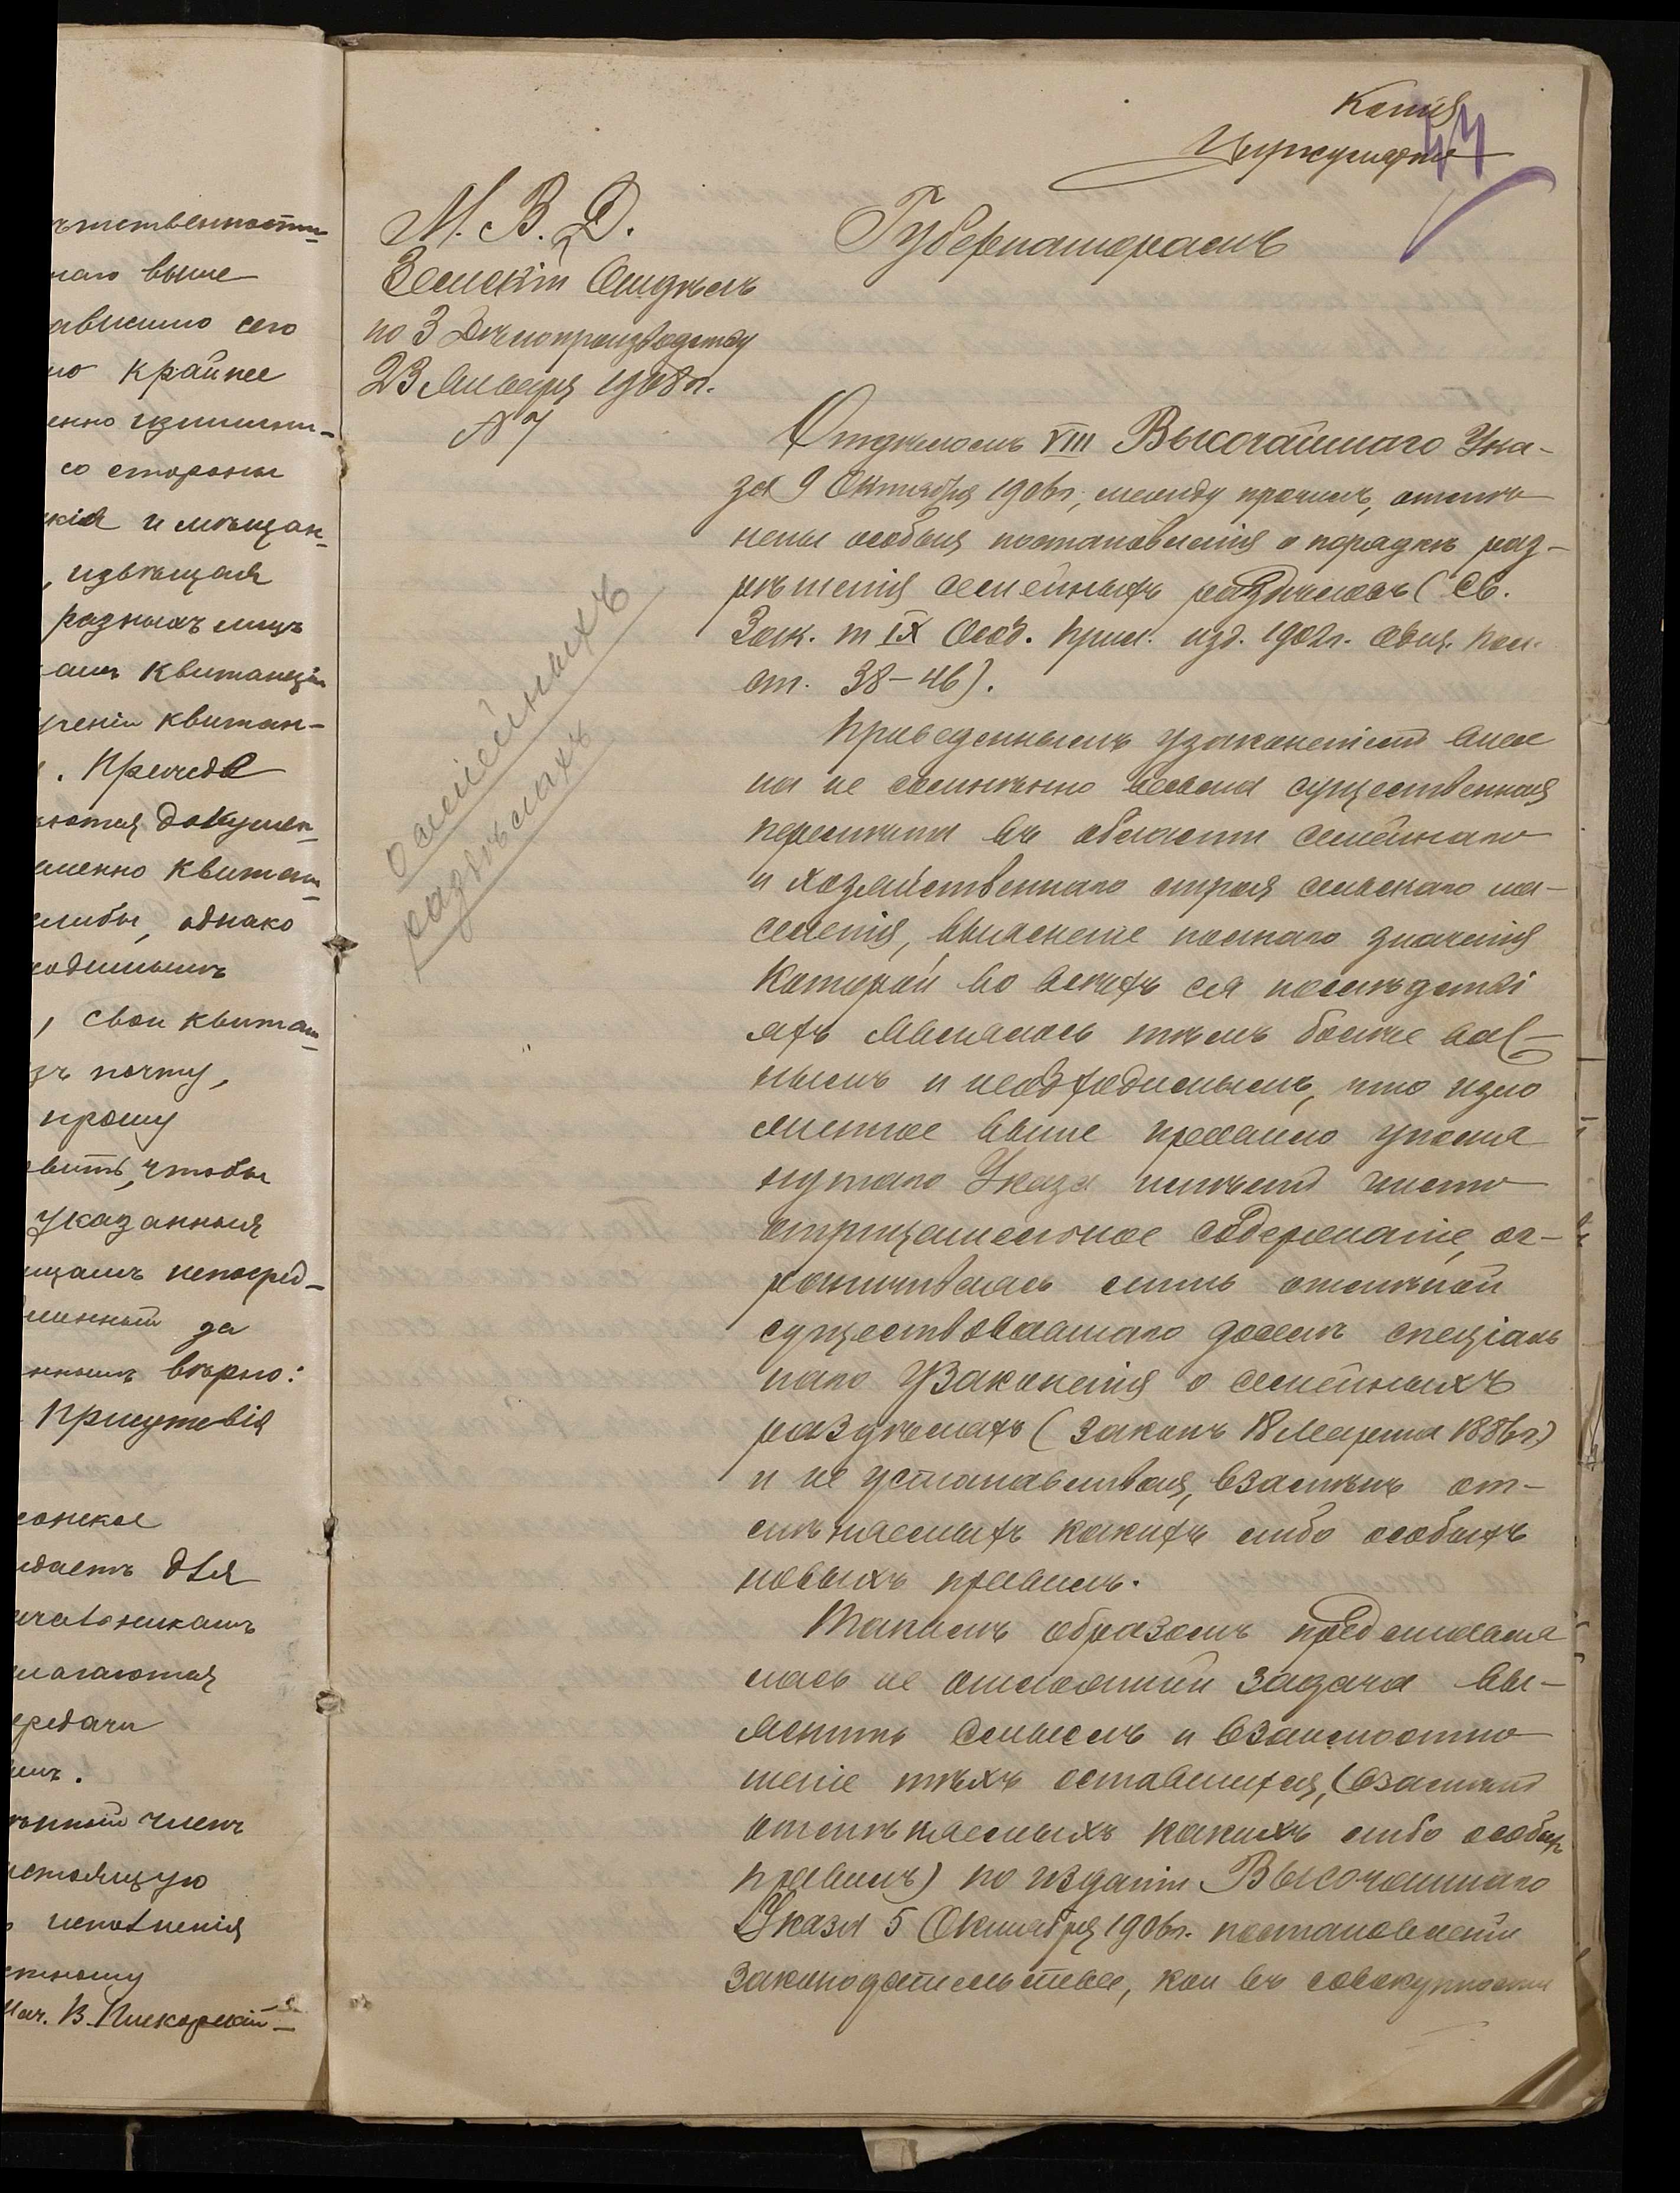 ственности
наго выше
ависимо сего
но крайнее
енно излишни-
со стороны
кія и мѣщан-
, извѣщая
разныхъ лицъ
амъ квитанціи
ученіи квитан-
. Причемъ
аются докумен-
именно квитан-
службы, однако
ходимымъ
, свои квитан-
зъ почту,
прошу
вить, чтобы
указанныя
ицамъ непосред-
менный за
ннымъ вѣрно:
Присутствія
даетъ для
чальникамъ
лагаются
передачи
имъ.
нный членъ
стоящую
исполненія
стному
Нач. В. Пискорскій
Копія
Циркулярно
44
М. В. Д.
Земскій Отдѣлъ
по 3 Дѣлопроизводству
23 Января 1908 г.
№ 7
Губернаторамъ
о семейныхъ
раздѣлахъ
Отдѣломъ VIII Высочайшаго Ука-
за 9 Октября 1906 г., между прочимъ, отмѣ
нены особыя постановленія о порядкѣ раз-
рѣшенія семейныхъ раздѣловъ (Св.
Зак. т IX Особ. Прил. изд. 1902 г. Общ. Пол.
ст. 38-46).
Приведеннымъ узаконеніемъ внесе
на не сомнѣнно весьма существенная
перемѣна въ области семейнаго
и хозяйственнаго строя сельскаго на-
селенія, выясненіе полнаго значенія
которой во всѣхъ ея послѣдстві
яхъ являлось тѣмъ болѣе важ-
нымъ и необходимымъ, что изло
женное выше правило упомя
нутаго Указа имѣетъ чисто
отрицательное содержаніе, ог-
раничиваясь лишь отмѣной
существовавшаго доселѣ спеціаль
наго узаконенія о семейныхъ
раздѣлахъ (законъ 18 Марта 1886 г.)
и не устанавливая, взамѣнъ от-
мѣняемыхъ какихъ либо особыхъ
новыхъ правилъ.
Такимъ образомъ представля
лась не отложной задача вы-
яснить смыслъ и взаимоотно
шеніе тѣхъ оставшихся, (взамѣнъ
отмѣняемыхъ какихъ либо особыхъ
правилъ) по изданіи Высочайшаго
Указа 5 Октября 1906 г. постановленій
законодательства, кои въ совокупности